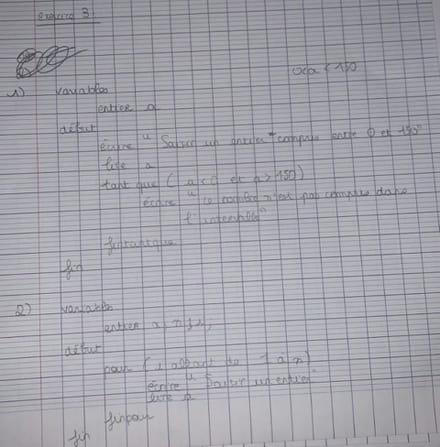 Exercice 3
0<a<150
1) variables
entier a
début
écrire " Saisir un entier compris entre 0 et 150"
lire a
tant que ( a<0 et a>150)
écrire " ce nombre n'est pas compris dans
l'intervalle"
fintantque
fin
2) variables
entier a, n, i;
début
pour (i allant de 1 à n)
écrire " Saisir un entier"
lire a
finpour
fin